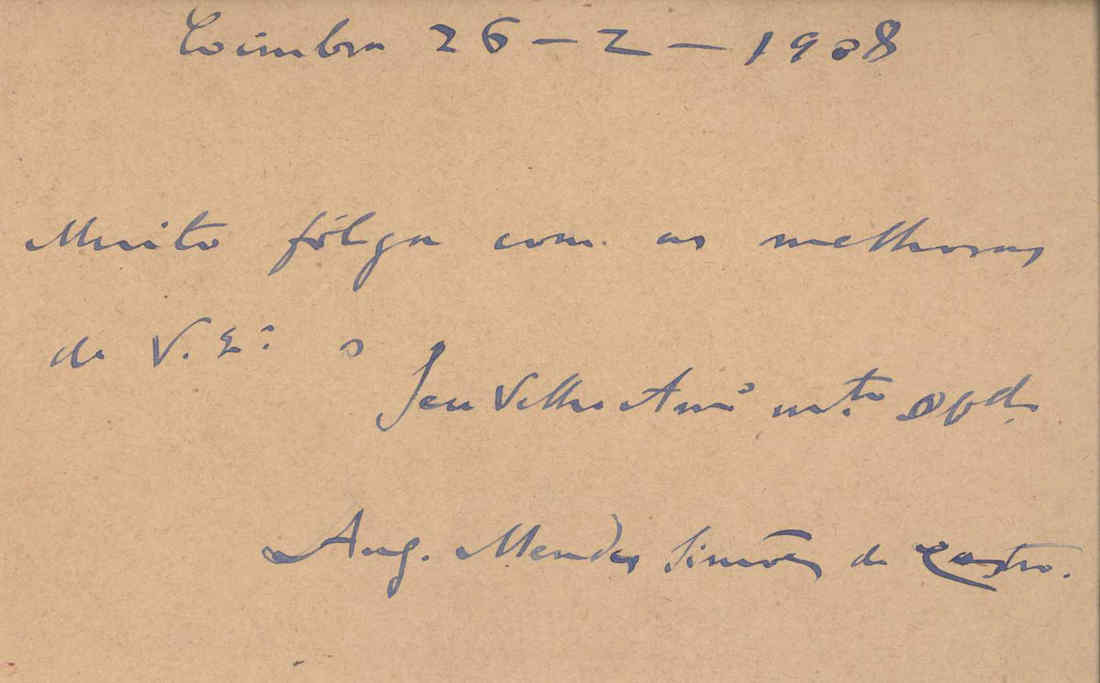 Coimbra 26-2-1908
Muito fólga com as melhoras
de V. E.ª o
Seu Velho Am.º m.to
Aug. Mendes Simões de Castro.